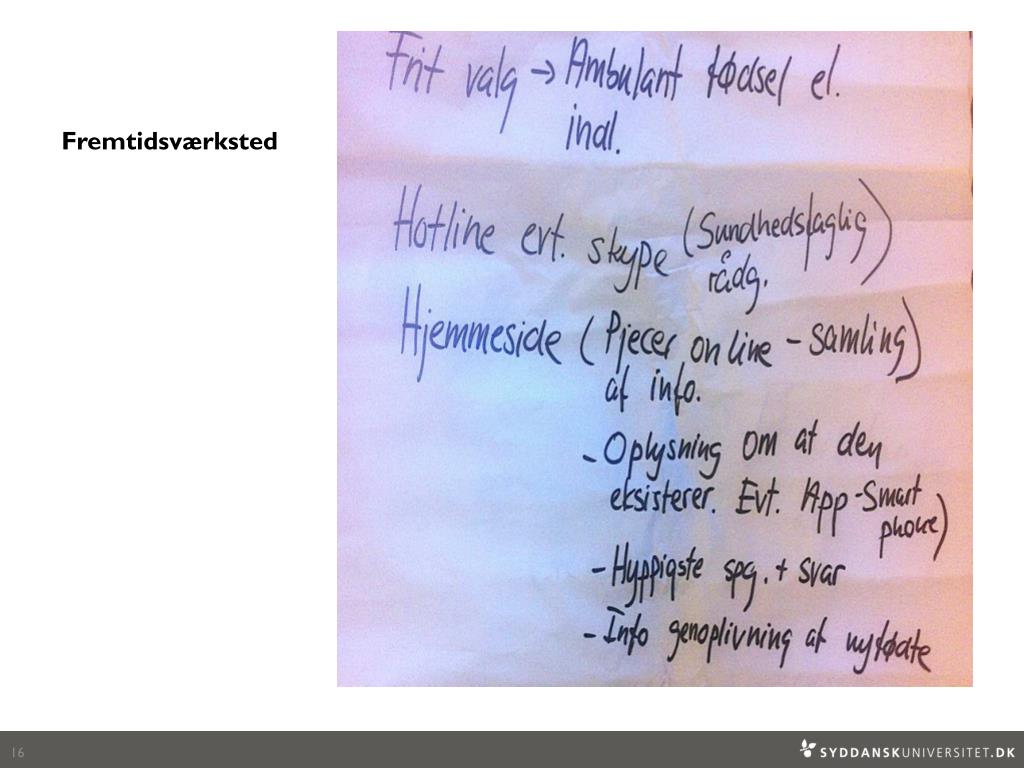 Fremtidsværksted
Frit valg → Ambulant fødsel el.
indl.
Hotline evt. skype (Sundhedsfaglig)
rådg.
Hjemmeside (Pjecer online - samling)
af info.
- Oplysning om at den
eksisterer. Evt. App - Smart
phone)
- Hyppigste spg. + svar
- Info genoplivning af nyfødte
16
SYDDANSKUNIVERSITET.DK